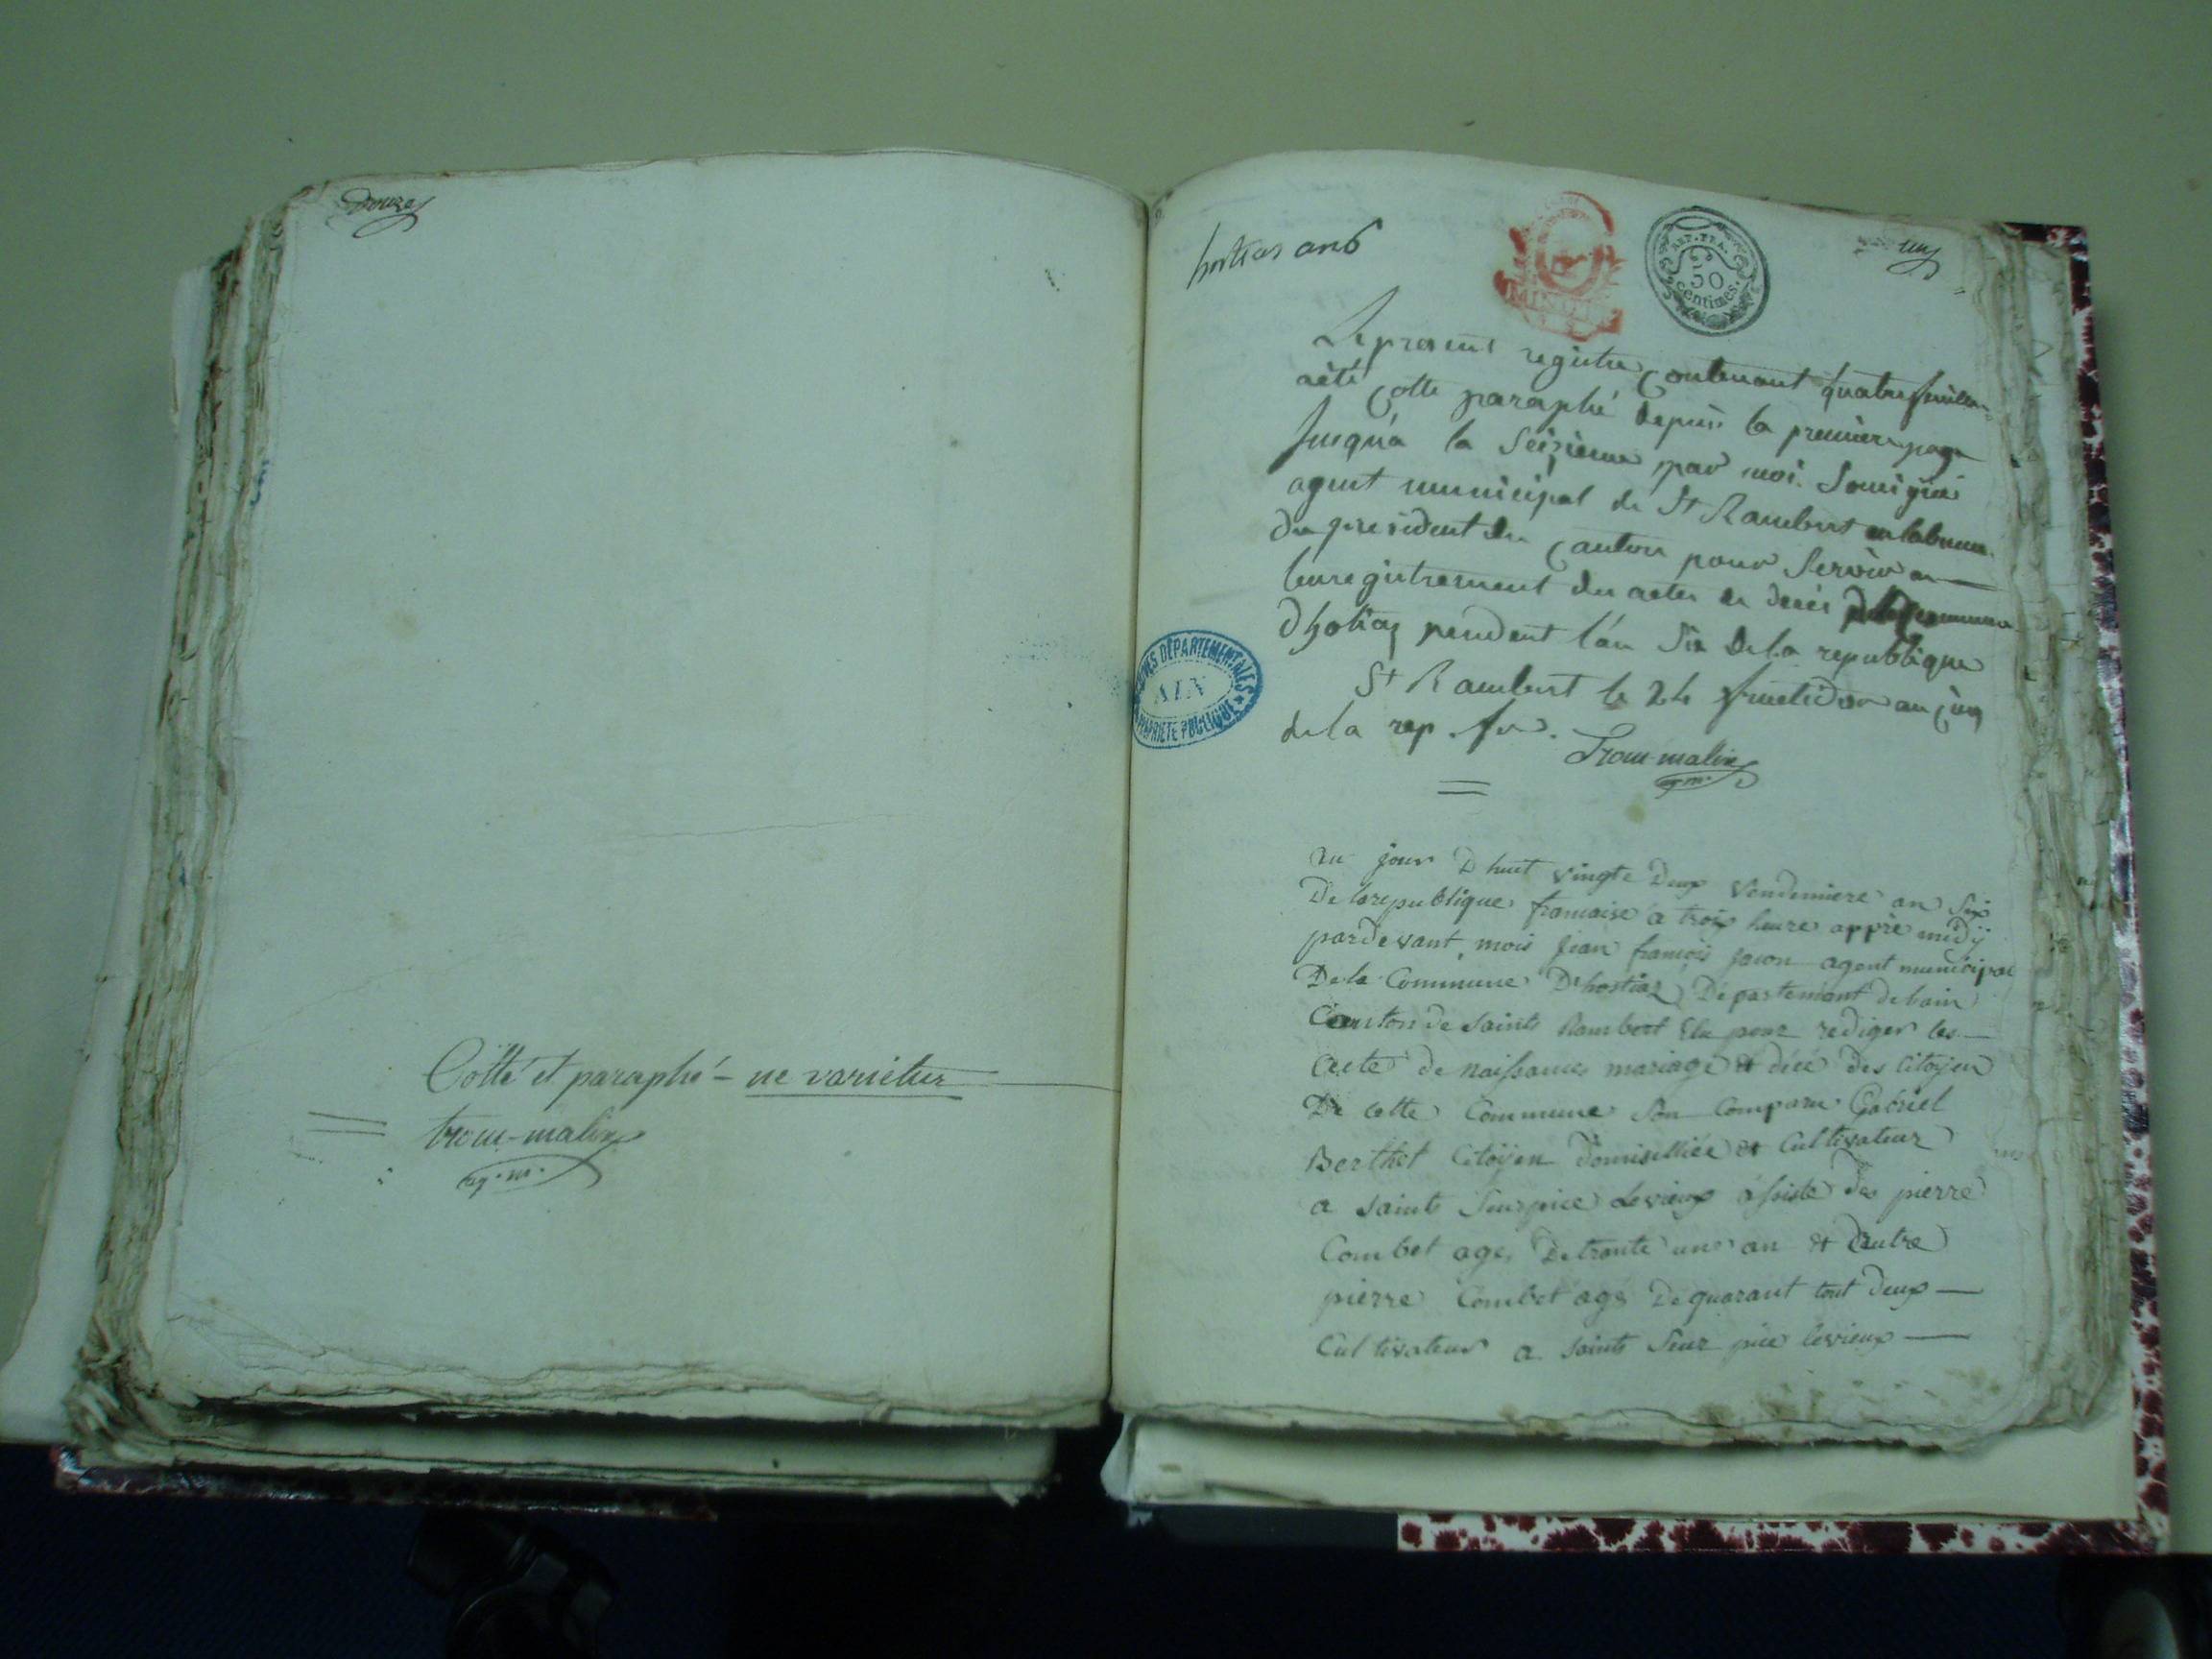 Douze
Cotté et paraphé - ne varietur
trou-malin
ag. m.
hostias an 6
MINUTE
REP. FRA.
50
centimes.
un
Le present registre contenant quatre feuilles
aété cotte paraphé depuis la premiere page
Jusqu'a la Seizieme par moi Sousigné
agent municipal de St Rambert en labsence
du president du Canton pour Servir a
lenregistrement des actes de decés de la commune
d'hostiaz pendent l'an Six de la republique
St Rambert le 24 fructidor an cinq
de la rep. fr.
Trou-malin
ag. m.
ARCHIVES DÉPARTEMENTALES
AIN
PROPRIÉTÉ PUBLIQUE
au jour D huit vingte Deux Vendemiere an Six
De la republique francaise a trois heure appré midÿ
pardevant mois jean françois jacon agent municipal
De la Commune D'hostiaz Departemant de lain
Canton de saints Rambert Elu pour rediger les
acte de naissance mariage et décé des Citoyen
De cette Commune Son Comparu Gabriel
Berthet Citoÿen domisilliée et Cultivateur
a saints Seurpice Levieux assiste des pierre
Combet age De trante une an et Dautre
pierre Combet age De quarant tout deux
Cultivateur a saints Seur pice levieux